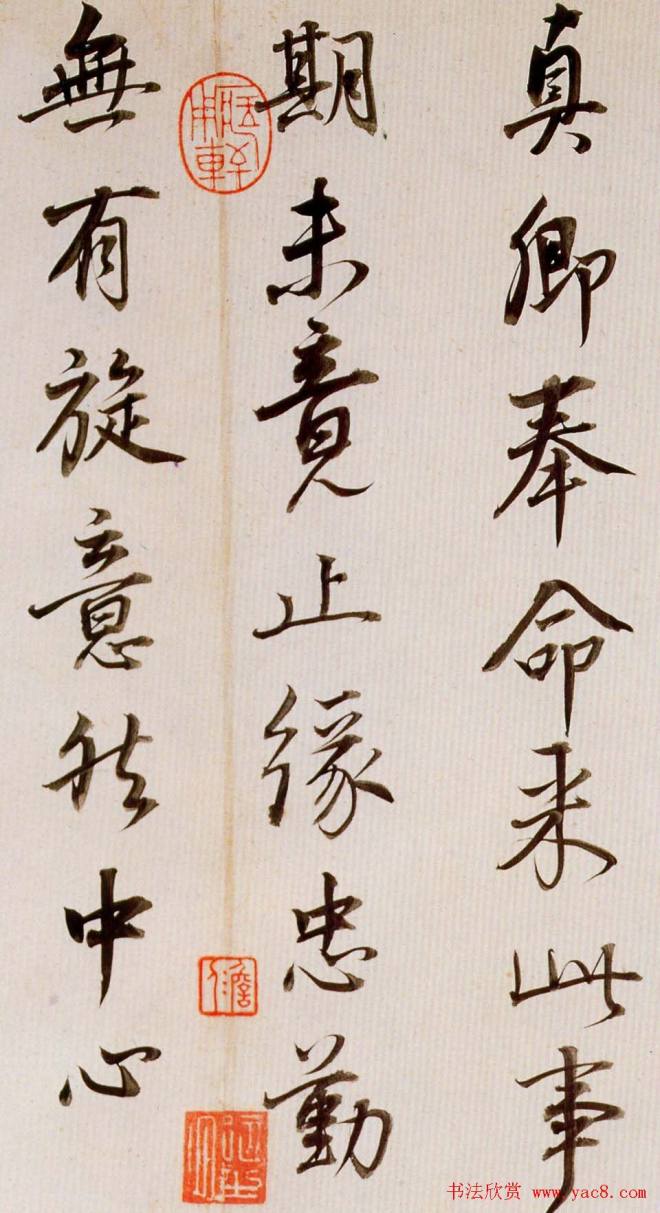 真卿奉命来此事
期未竟止缘忠勤
無有旋意然中心
书法欣赏 www.yac8.com